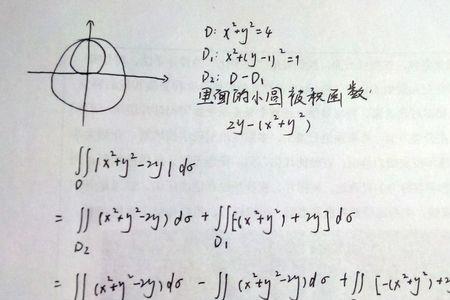 D: x²+y²=4
D₁: x²+(y-1)²=1
D₂: D-D₁
里面的小圆被积函数:
2y-(x²+y²)
∬_D |x²+y²-2y| dσ
= ∬_D₂ (x²+y²-2y) dσ + ∬_D₁ [-(x²+y²)+2y] dσ
= ∬ (x²+y²-2y) dσ - ∬ (x²+y²-2y) dσ + ∬ [-(x²+y²)+2